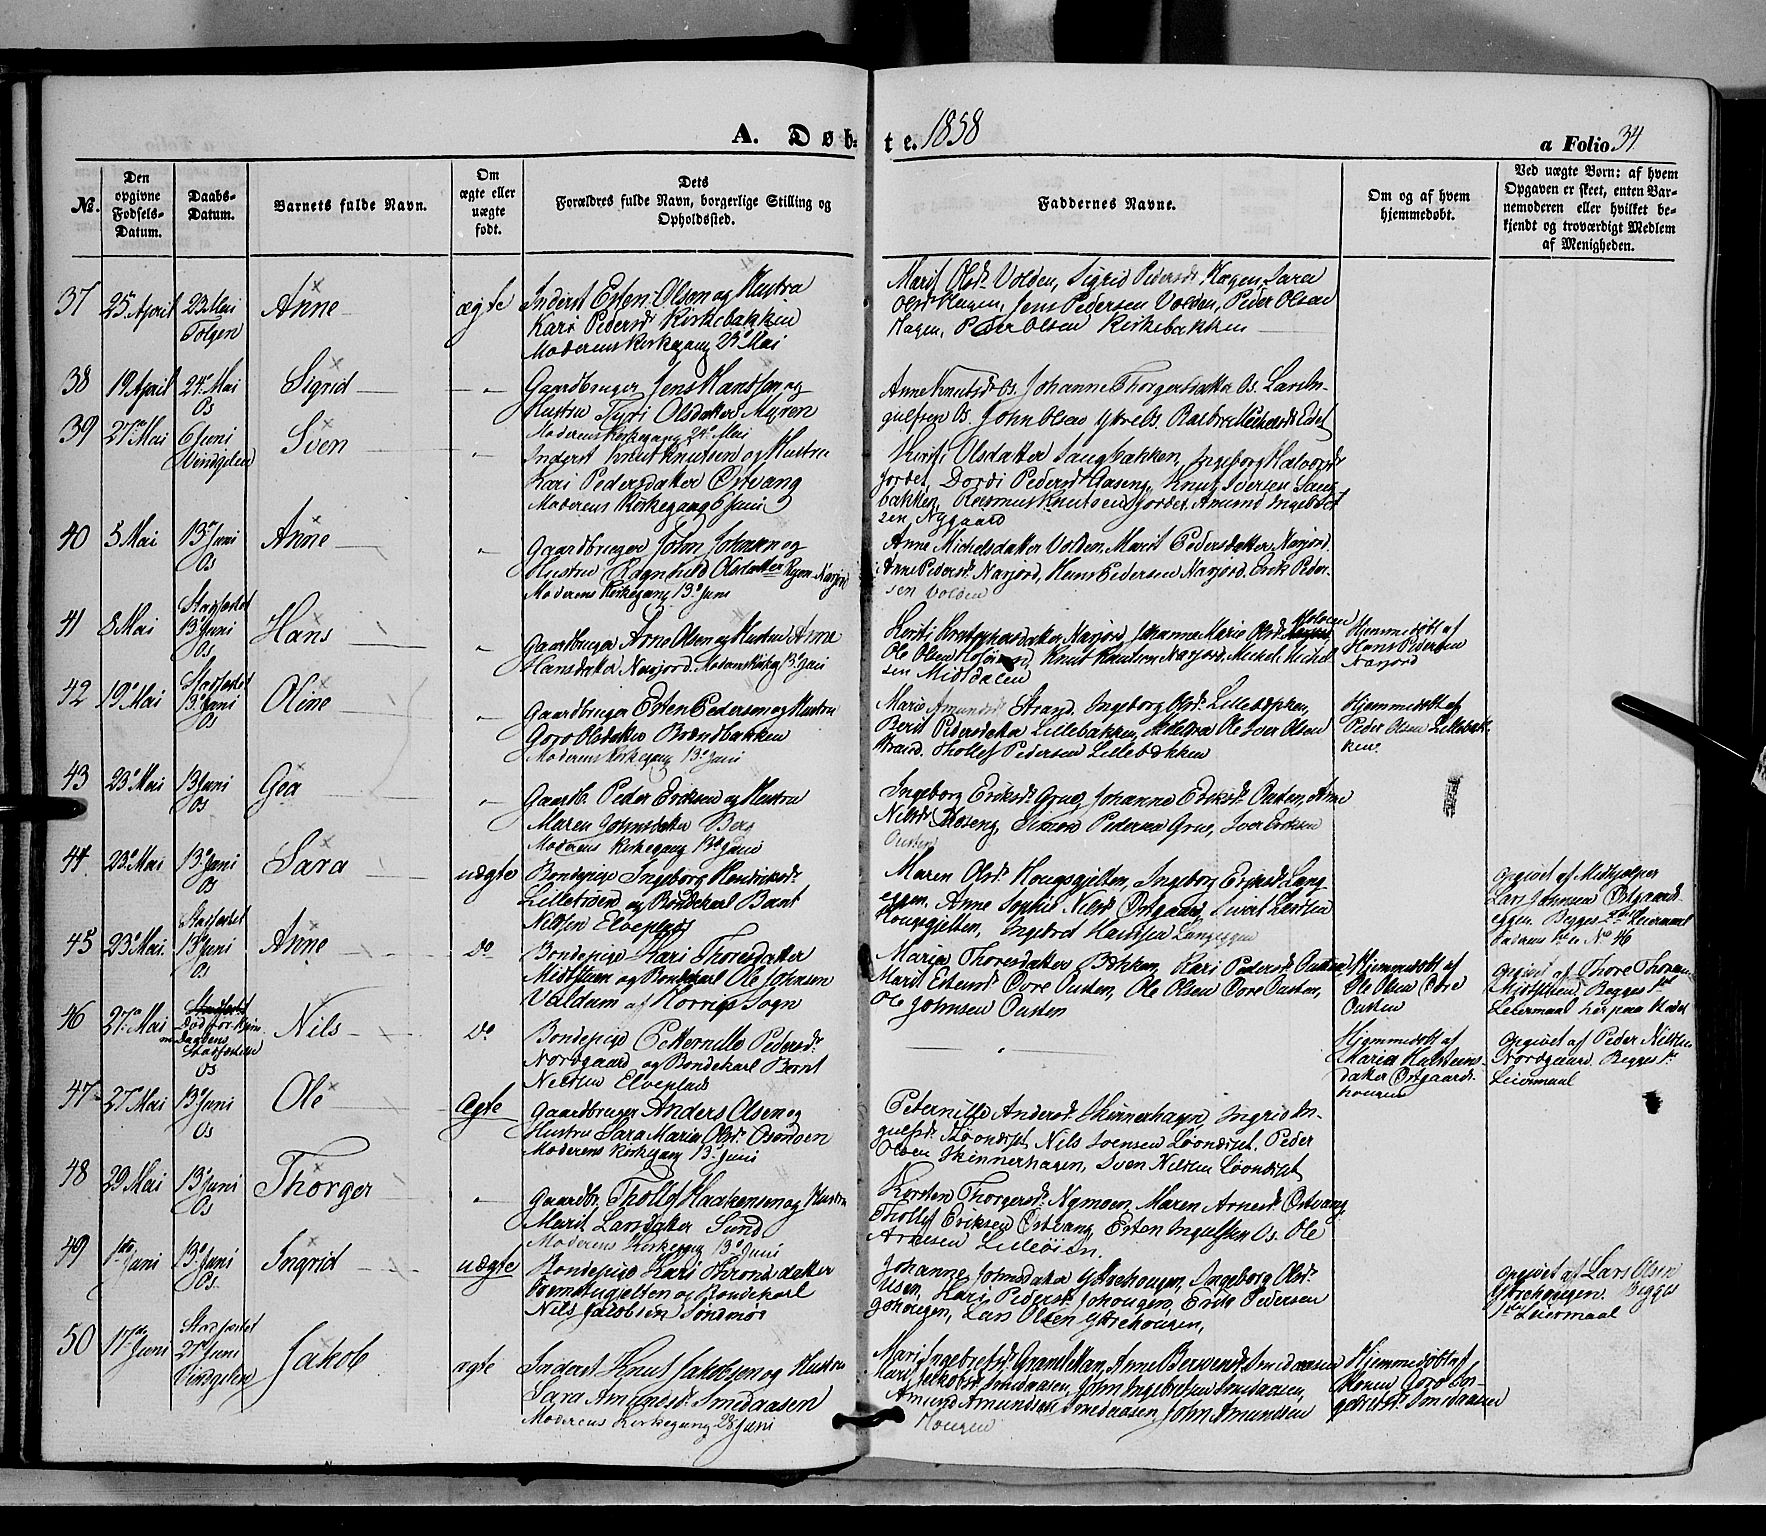 A. Døbte. 1858
a Folio 34
№.
Den opgivne Fødsels-Datum.
Daabs-Datum.
Barnets fulde Navn.
Om ægte eller uægte født.
Dets Forældres fulde Navn, borgerlige Stilling og Opholdssted.
Faddernes Navne.
Om og af hvem hjemmedøbt.
Ved uægte Børn: af hvem Opgaven er skeet, enten Barnemoderen eller hvilket bekjendt og troværdigt Medlem af Menigheden.
37 25 April 23 Mai Tolgen Anne ægte
Inderst Esten Olsen og Hustru
Kari Pedersdr Kirkebakken
Moderens Kirkegang 23de Mai
Marit Olsdr Volden, Sigrid Pedersdr Hagen, Sara
Olsdr Hagen, Jens Pedersen Volden, Peder Olsen
Hagen, Peder Olsen Kirkebakken
38 19 April 24 Mai Os Sigrid "
Gaardbruger Jens Hansen og
Hustru Tyri Olsdatter Myren
Moderens Kirkegang 24de Mai
Anne Knutsdr Os. Johanne Thorgersdatter Os. Lars In-
gulfsen Os. John Olsen
39 27 Mai 6 Juni Vindgelen Sven "
Inderst Knut Knutsen og Hustru
Kari Pedersdatter Østvang
Moderens Kirkegang 6 Juni
Kirsti Olsdatter Saugbakken, Ingeborg Halvorsdr
Jordet, Dordi Pedersdr Aaseng, Knut Iversen Saug-
bakken, Rasmus Knutsen Jordet, Amund Ingebret-
sen Nygaard
40 5 Mai 13 Juni Os Anne "
Gaardbruger John Johnsen og
Hustru Ragnhild Olsdatter Ryen Narjord
Moderens Kirkegang 13de Juni
Anne Michelsdatter Volden, Marit Pedersdatter Narjord.
Anne Pedersdr Narjord, Hans Pedersen Narjord. Erik Peder-
sen Volden
41 8 Mai Stadfæstet 13 Juni Os Hans "
Gaardbruger Arne Olsen og Hustru Anne
Hansdatter Narjord. Moderens Kirkeg 13de Juni
Kirsti Kristophersdatter Narjord, Johanne Marie Olsdr
Ole Olsen Knut Knutsen Narjord, Michel Michel-
sen Midtdalen
Hjemmedøbt af
Hans Pedersen
Narjord
42 19 Mai Stadfæstet 13de Juni Os Oline "
Gaardbruger Esten Pedersen og Hustru
Goro Olsdatter Brændbakken
Moderens Kirkegang 13de Juni
Marie Amundsdr Strand. Ingeborg Olsdr Lillebakken,
Berit Pedersdatter Lillebakken, Ole Iver Olsen
Strand. Thollef Pedersen Lillebakken
Hjemmedøbt af
Peder Olsen Lillebak-
ken.
43 23de Mai 13 Juni Os Goa "
Gaardb. Peder Eriksen og Hustru
Maren Johnsdatter Berg
Moderens Kirkegang 13de Juni
Ingeborg Eriksdr Grue, Johanne Eriksdr Ousten, Anne
Nilsdr Moseng, Simon Pedersen Grue, Iver Eriksen
Ousten
44. 23de Mai 13de Juni Os Sara uægte
Bondepige Ingeborg Hendriksdr
Lillebroen og Bondekarl Bernt
Nilsen Elveplads
Maren Olsdr Hougsgjelten, Ingeborg Eriksdr Lang-
eggen, Anne Sophie Nilsdr Østgaard, Sivert Larsen
Hougsgjelten, Ingebret Hansen Langeggen
Opgivet af Medhjelper
Lars Johnsen Østgaards-
eggen. Begges 2det Leiermaal
No 46
45 23de Mai. Stadfæstet 13de Juni Os Anne Do
Bondepige Kari Thoresdatter
Midthuun og Bondekarl Ole Johnsen
Valdum af Horrigs Sogn
Maria Thoresdatter Bakken, Kari Pedersdr Ousten
Marit Estensdr Øvre Ousten, Ole Olsen Øvre Ousten,
Ole Johnsen Ousten
Hjemmedøbt af
Ole Olsen Øvre
Ousten
Opgivet af Thore Thoresen
Midthuun. Begges 1ste
Leiermaal
46 27 Mai Død før Hjem-
medaabens
Stadfæstelse
Os Nils Do
Bondepige Petternille Pedersdr
Nordgaard og Bondekarl Bernt
Nilsen Elveplads
"
Hjemmedøbt af
Maria Halsteens-
datter Østgaards-
hougen
Opgivet af Peder Nilsen
Nordgaard. Begges 1ste
Leiermaal
47 27 Mai 13de Juni Os Ole Ægte
Gaardbruger Anders Olsen og
Hustru Sara Maria Olsdr Osmoen
Moderens Kirkegang 13 Juni
Peternille Andersdr Skinnerhagen, Ingrid In-
gulfsdr Nils Svensen Peder
Olsen Skinnerhagen, Sven Nilsen
48 29 Mai 13de Juni Os Thorger "
Gaardbr. Thollef Haakensen og Hustru
Marit Larsdatter Sund
Moderens Kirkegang 13de Juni
Kersten Thorgersdr Nymoen, Maren Arnesdr Østvang
Thollef Eriksen Østvang, Esten Ingulfsen Os. Ole
Arnesen Lilleøien.
49 1ste Juni 13de Juni Os. Ingrid uægte
Bondepige Kari Throndsdatter
og Bondekarl
Nils Jacobsen Søndmør
Johanne Johnsdatter Yttrehougen, Ingeborg Olsdr
Kari Pedersdr Johougen, Erik Pedersen
Johougen, Lars Olsen Yttrehougen,
Opgivet af Lars Olsen
Yttrehougen. Begges
1ste Leiermaal
50 17de Juni Stadfæstet 27de Juni Vindgelen Jakob ægte
Inderst Knut Jakobsen og Hustru
Sara Amundsdr Smedaasen
Moderens Kirkegang 28 Juni
Mari Ingebretsdr Anne Smedaasen
Mari Jakobsdr Smedaasen, John Ingebretsen Smedaasen,
Amund Amundsen Smedaasen, John Amundsen
Hougen
Hjemmedøbt af
Konen Goro In-
gebretsdr Smedaasen